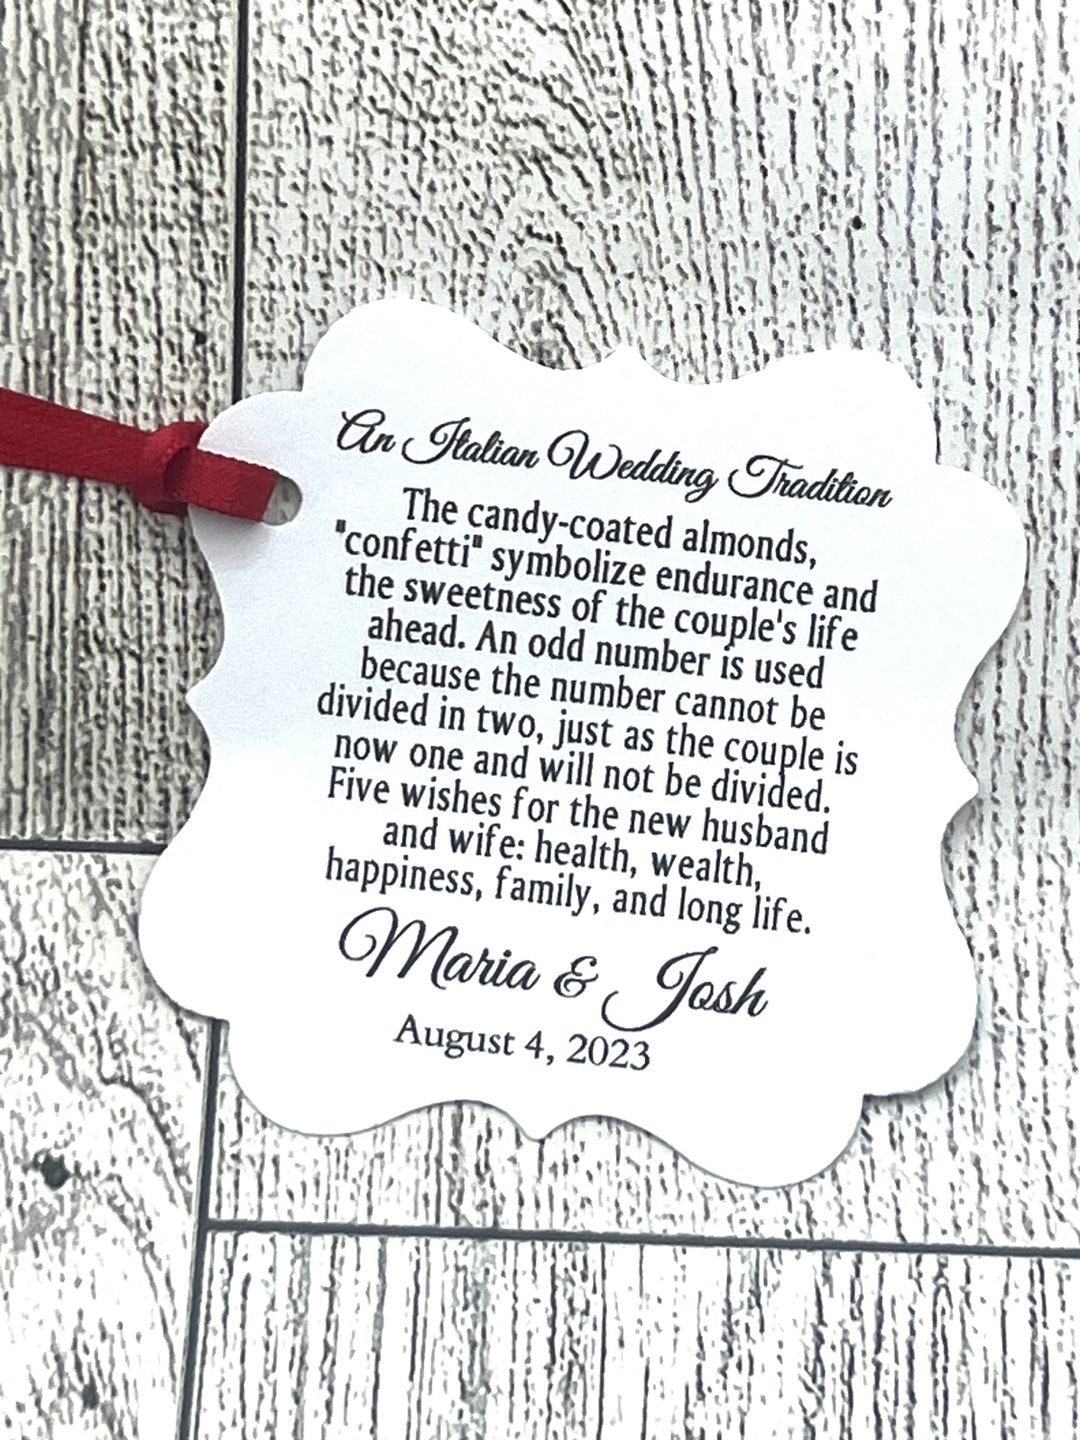 An Italian Wedding Tradition
The candy-coated almonds,
"confetti" symbolize endurance and
the sweetness of the couple's life
ahead. An odd number is used
because the number cannot be
divided in two, just as the couple is
now one and will not be divided.
Five wishes for the new husband
and wife: health, wealth,
happiness, family, and long life.
Maria & Josh
August 4, 2023